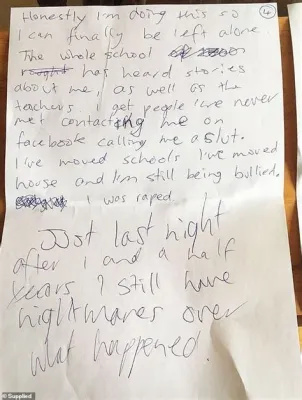 4
Honestly I'm doing this so
I can finally be left alone.
The whole school
has heard stories
about me, as well as the
teachers. I get people I've never
met contacting me on
facebook calling me a slut.
I've moved schools I've moved
house and I'm still being bullied.
I was raped.
Just last night
after 1 and a half
years I still have
nightmares over
what happened.
© Supplied